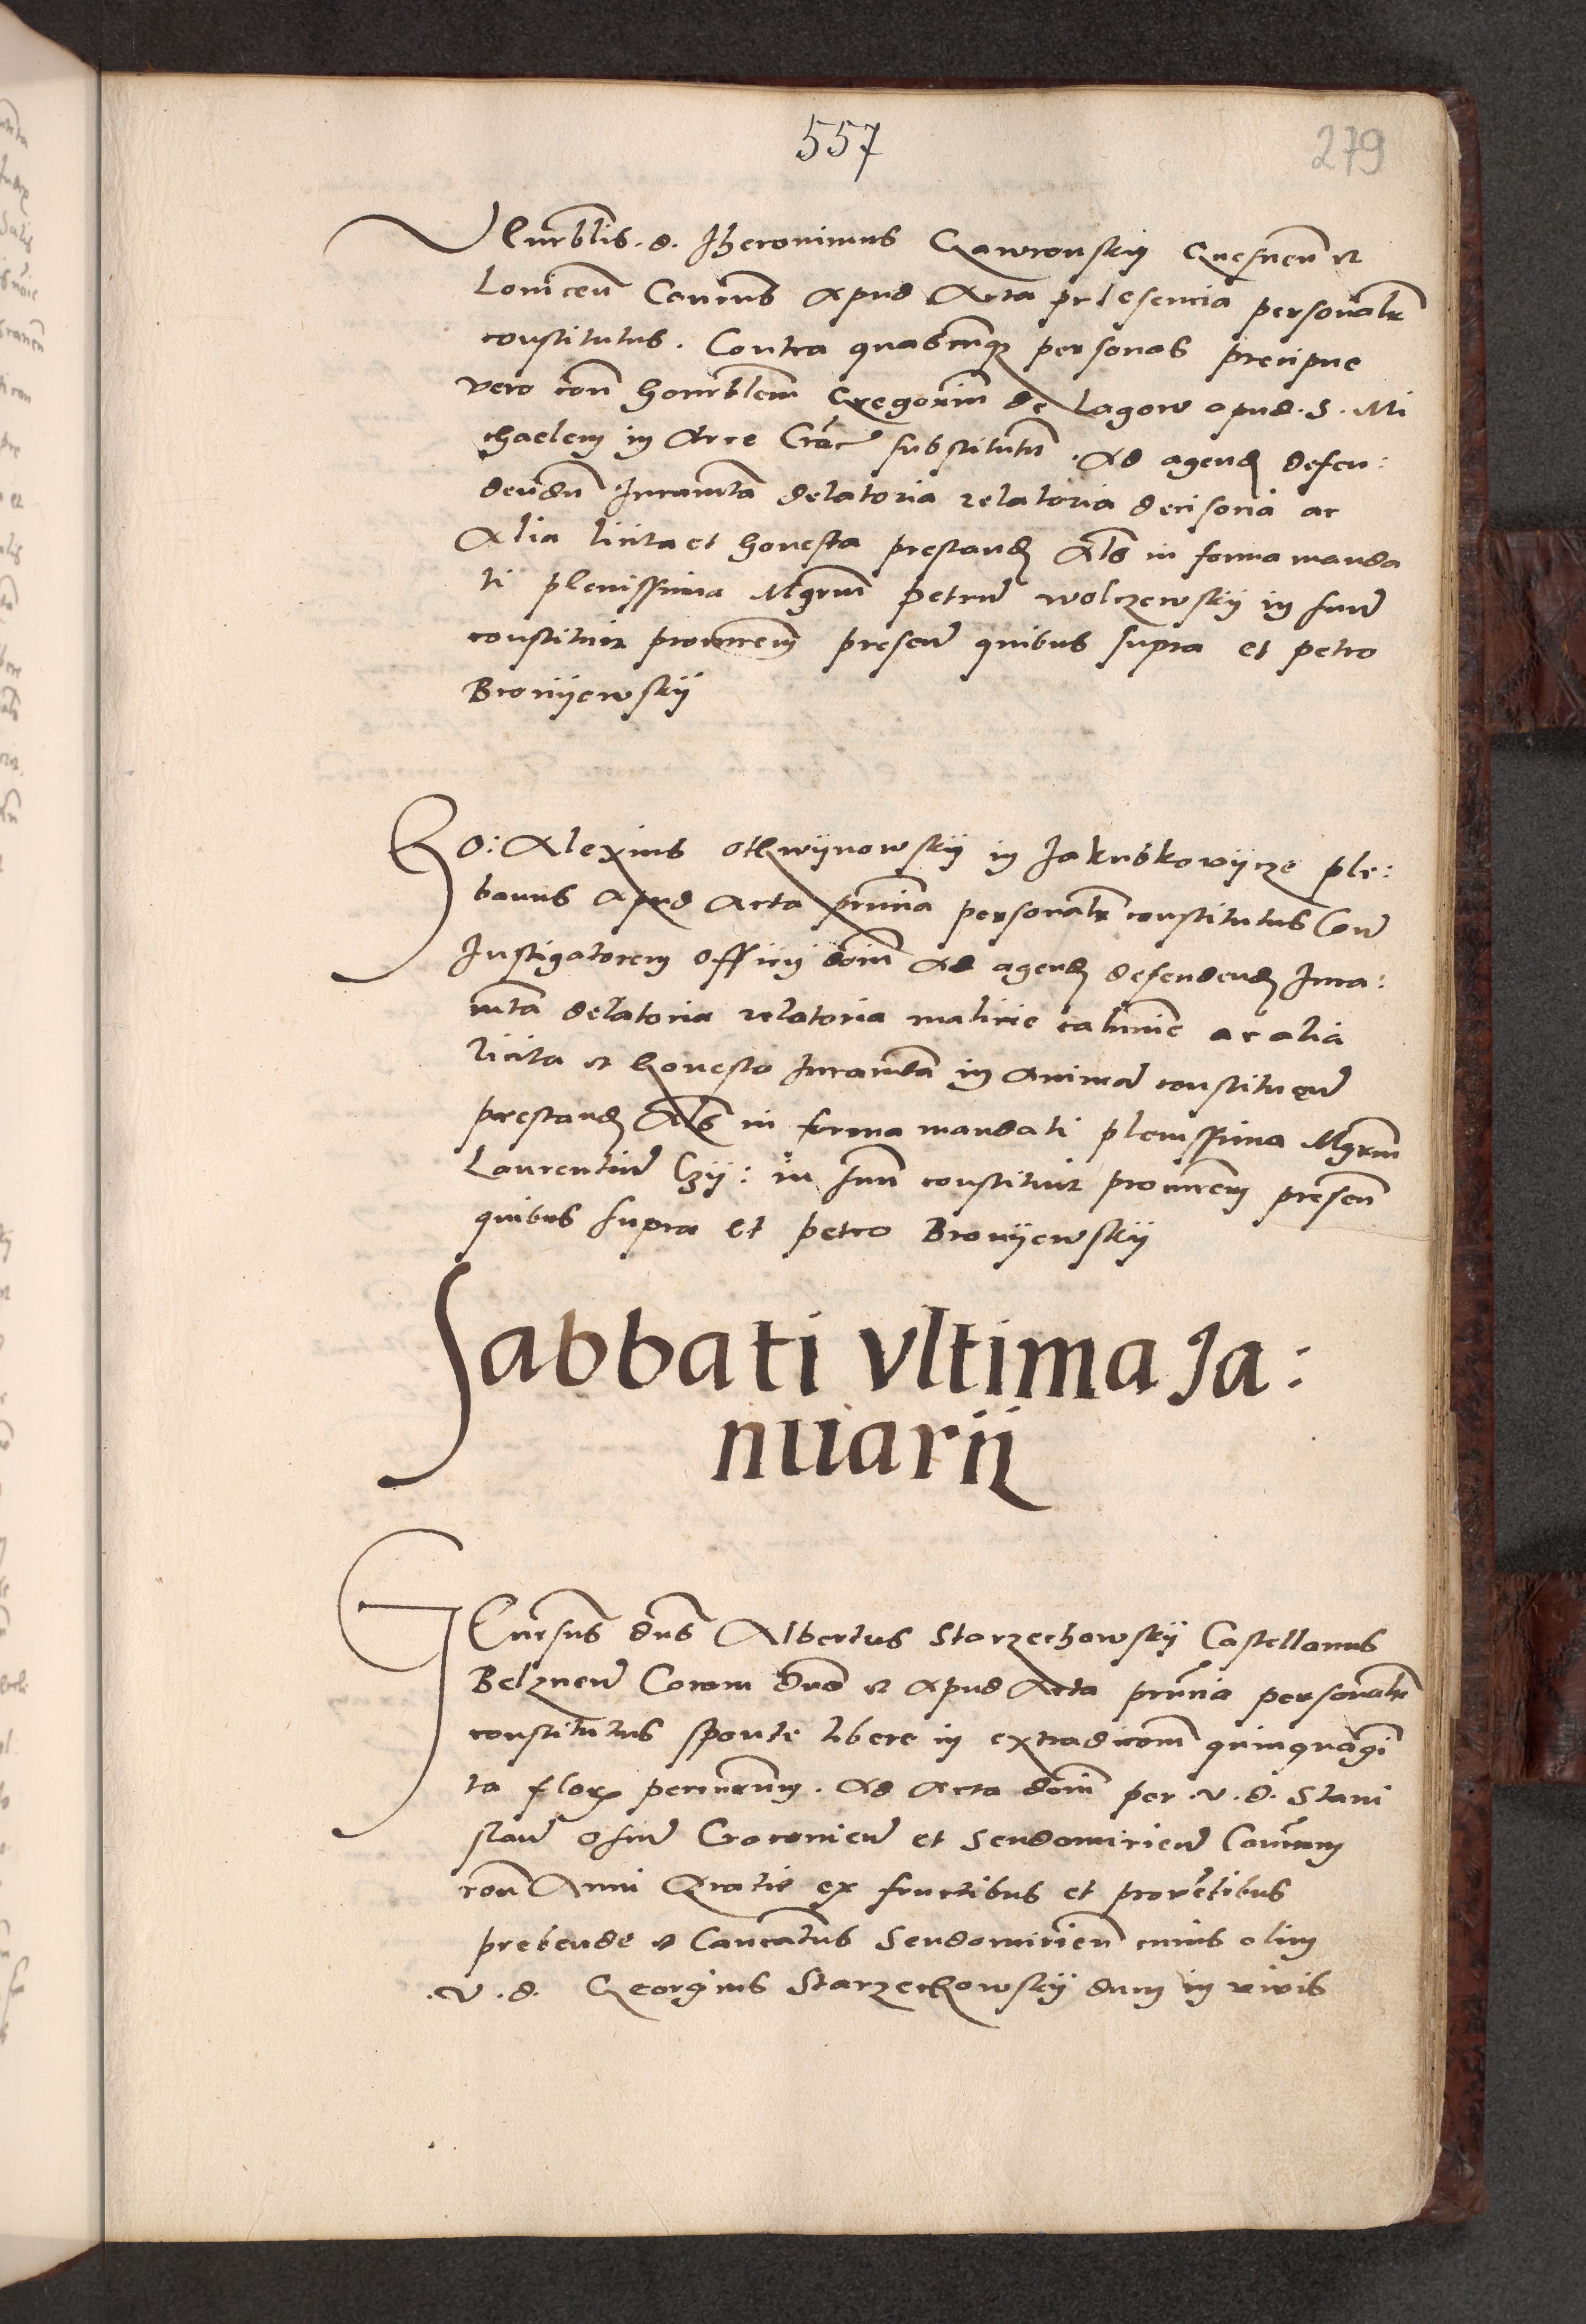 557
279
Venrblis. d. Jheronimus Gawronskij Gnesnen et
Loviceñ Canous apud Acta presencia personalr
constitutus. Contra quascunq personas precipue
vero con honorblem Gregorium de Lagow apud. S. Mi
chaelem in Arce Crac substitutu. Ad agend defen:
dendu Juramta delatoria relatoria decisoria ac
Alia licita et honesta prestand Als in forma manda
ti plenissima Mgrum petru wolczewskij in suu
constituit procurem presen quibus supra et petro
Bronijewskij
Ho: Alexius othwijnowskij in Jakubkowijcze ple:
banus apud Acta prncia personalr constitutus Con
Instigatorem officij dom Ad agend defendend Jura:
mta delatoria relatoria malicie calumie ac alia
licita et honesta Juramta in animam constituen
prestand Als in forma mandati plenissima Mgrum
Laurentiu : in suu constituit procurem presen
quibus supra et petro Bronijewskij
Sabbati vltima Ja:
nuarij
Gnersus dns Albertus Starzechowskij Castellanus
Belznen Coram dno et apud Acta prncia personalr
constitutus sponte libere in extradicom quinquagi
ta flor pecuniarum. Ad Acta dom per. v. d. Stani
slau osnu Cracovien et Sendomirien Canm
con Anni Gratie ex fructibus et proventibus
prebende et Canocatus Sendomirien cuius olim
.v. d. Georgius Starzechowskij dum in vivis